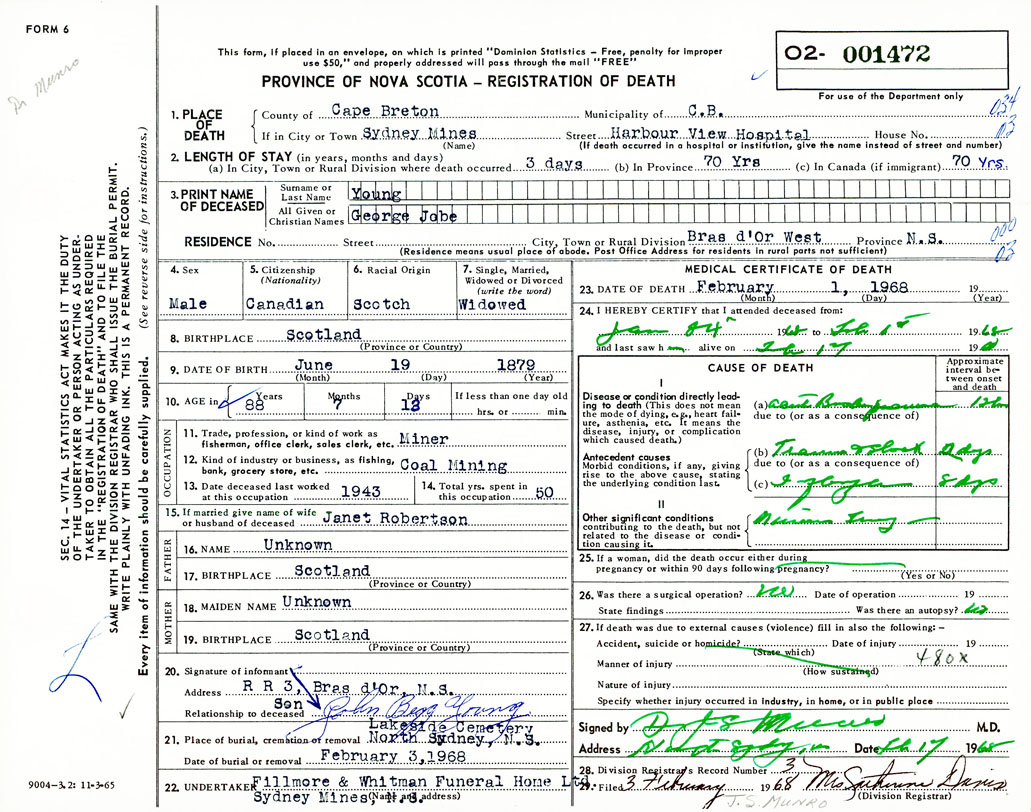 FORM 6
Dr Munro
This form, if placed in an envelope, on which is printed "Dominion Statistics – Free, penalty for improper
use $50," and properly addressed will pass through the mail "FREE"
PROVINCE OF NOVA SCOTIA – REGISTRATION OF DEATH
02- 001472
For use of the Department only
SEC. 14 – VITAL STATISTICS ACT MAKES IT THE DUTY
OF THE UNDERTAKER OR PERSON ACTING AS UNDER-
TAKER TO OBTAIN ALL THE PARTICULARS REQUIRED
IN THE "REGISTRATION OF DEATH" AND TO FILE THE
SAME WITH THE DIVISION REGISTRAR WHO SHALL ISSUE THE BURIAL PERMIT.
WRITE PLAINLY WITH UNFADING INK. THIS IS A PERMANENT RECORD.
Every item of information should be carefully supplied. (See reverse side for instructions.)
1. PLACE OF DEATH
County of Cape Breton Municipality of C.B.
If in City or Town Sydney Mines Street Harbour View Hospital House No.
(Name) (If death occurred in a hospital or institution, give the name instead of street and number)
034
03
2. LENGTH OF STAY (in years, months and days)
(a) In City, Town or Rural Division where death occurred 3 days (b) In Province 70 Yrs (c) In Canada (if immigrant) 70 Yrs.
3. PRINT NAME OF DECEASED
Surname or Last Name Young
All Given or Christian Names George Jobe
RESIDENCE No. Street City, Town or Rural Division Bras d'Or West Province N.S.
(Residence means usual place of abode. Post Office Address for residents in rural parts not sufficient)
000
03
4. Sex
Male
5. Citizenship
(Nationality)
Canadian
6. Racial Origin
Scotch
7. Single, Married,
Widowed or Divorced
(write the word)
Widowed
8. BIRTHPLACE Scotland
(Province or Country)
9. DATE OF BIRTH June 19 1879
(Month) (Day) (Year)
10. AGE in Years Months Days If less than one day old
88 7 13 hrs. or min.
OCCUPATION
11. Trade, profession, or kind of work as
fisherman, office clerk, sales clerk, etc. Miner
12. Kind of industry or business, as fishing,
bank, grocery store, etc. Coal Mining
13. Date deceased last worked
at this occupation 1943
14. Total yrs. spent in
this occupation 50
15. If married give name of wife
or husband of deceased Janet Robertson
FATHER
16. NAME Unknown
17. BIRTHPLACE Scotland
(Province or Country)
MOTHER
18. MAIDEN NAME Unknown
19. BIRTHPLACE Scotland
(Province or Country)
20. Signature of informant
Address R R 3, Bras d'Or, N.S.
Relationship to deceased Son John Begg Young
21. Place of burial, cremation or removal Lakeside Cemetery
North Sydney, N.S.
Date of burial or removal February 3,1968
22. UNDERTAKER Fillmore & Whitman Funeral Home Ltd.
Sydney Mines, N.S.
(Name and address)
MEDICAL CERTIFICATE OF DEATH
23. DATE OF DEATH February 1, 1968 19
(Month) (Day) (Year)
24. I HEREBY CERTIFY that I attended deceased from:
Jan 1968 to Feb 1st 1968
and last saw h alive on Feb 19
CAUSE OF DEATH
Approximate
interval be-
tween onset
and death
I
Disease or condition directly lead-
ing to death (This does not mean
the mode of dying, e.g., heart fail-
ure, asthenia, etc. It means the
disease, injury, or complication
which caused death.)
(a)
due to (or as a consequence of)
Antecedent causes
Morbid conditions, if any, giving
rise to the above cause, stating
the underlying condition last.
(b)
due to (or as a consequence of)
(c) 8 dys
II
Other significant conditions
contributing to the death, but not
related to the disease or condi-
tion causing it.
25. If a woman, did the death occur either during
pregnancy or within 90 days following pregnancy?
(Yes or No)
26. Was there a surgical operation? No Date of operation 19
State findings Was there an autopsy? No
27. If death was due to external causes (violence) fill in also the following: –
Accident, suicide or homicide? Date of injury 19
(State which)
Manner of injury 480X
(How sustained)
Nature of injury
Specify whether injury occurred in Industry, in home, or in public place
Signed by M.D.
Address Date Feb 1968
28. Division Registrar's Record Number 3
29. Filed 3 February 1968
(Division Registrar)
J.S. MUNRO
9004–3.2: 11-3-65